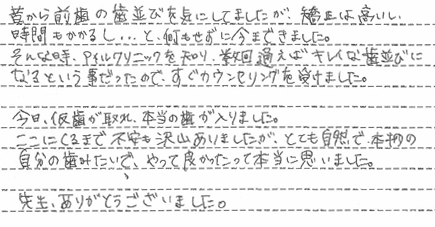 昔から前歯の歯並びを気にしてましたが、矯正は高いし
時間もかかるし...と、何もせずに今まできました。
そんな時、アイルクリニックを知り、数回通えばキレイな歯並びに
なるという事だったので、すぐカウンセリングを受けました。
今日、仮歯が取れ、本当の歯が入りました。
ここにくるまで不安も沢山ありましたが、とても自然で本物の
自分の歯みたいで、やって良かったって本当に思いました。
先生、ありがとうございました。